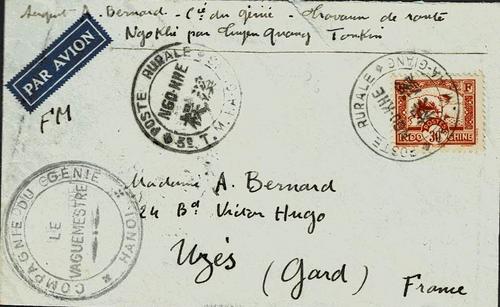 Sergent A. Bernard - Cie du génie - Travaux de route
Ngo Khê par Tuyen Quang Tonkin
PAR AVION
FM
POSTE RURALE
NGO-KHE
POSTE RURALE
HA-GIANG
NGO-KHE
30c
INDOCHINE
COMPAGNIE DU GÉNIE
HANOI
LE
VAGUEMESTRE
Madame A. Bernard
24 Bd Victor Hugo
Uzés
(Gard)
France